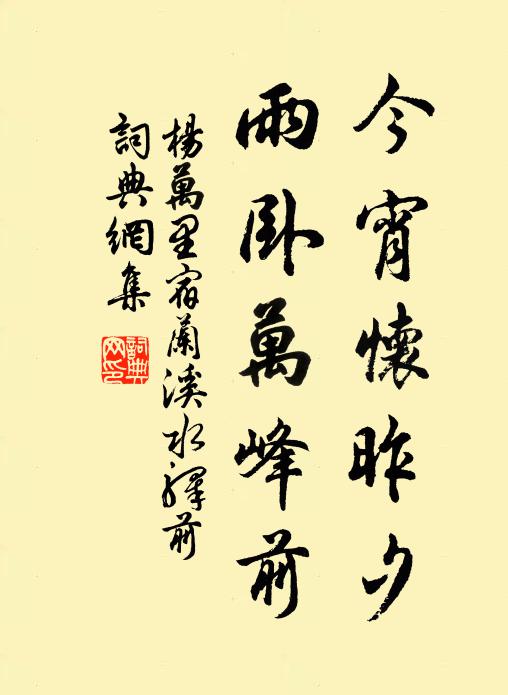 今宵懷昨夕
雨臥萬峰前
楊萬里宿蘭溪水驛前
詞典網集
詞典網印